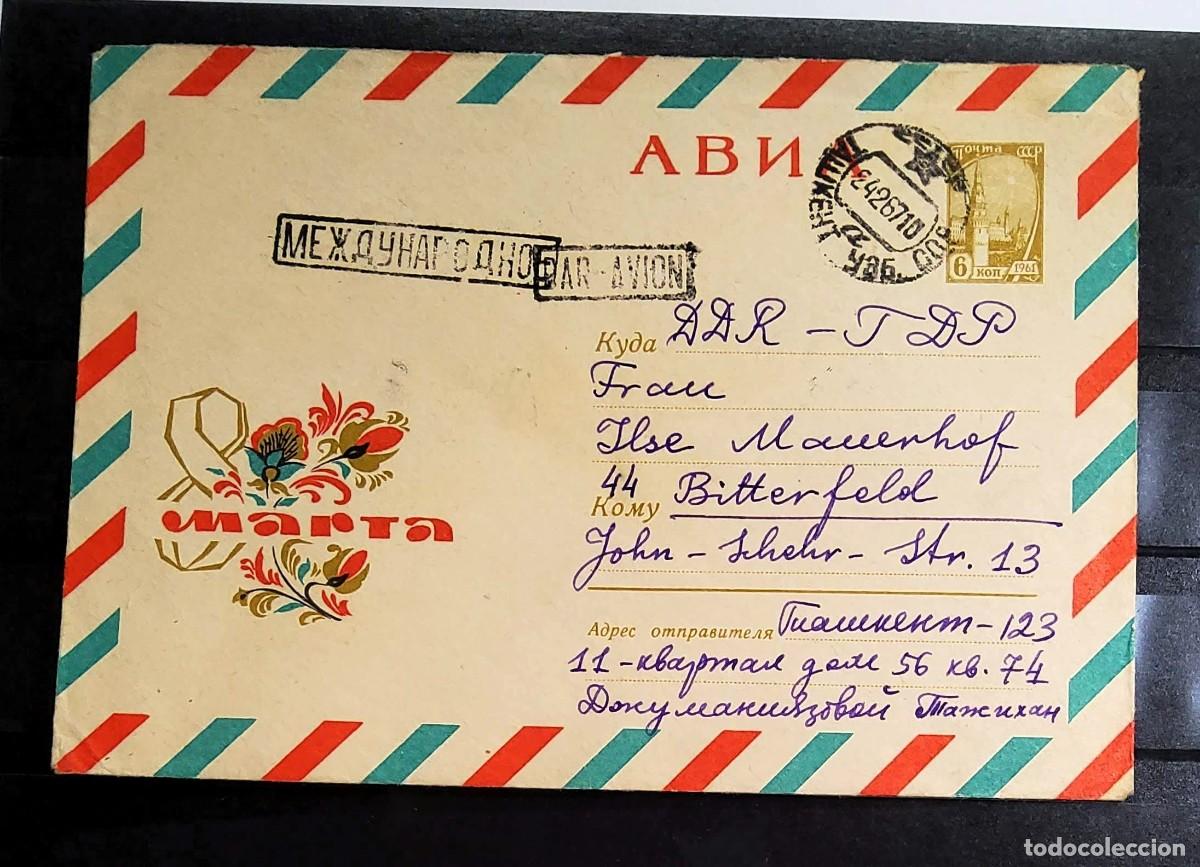 АВИА
Почта СССР
6 коп 1961
ТАШКЕНТ
УЗБ. ССР
24267 10
МЕЖДУНАРОДНО
PAR-AVION
Куда DDR - ГДР
Frau
Ilse Mauerhof
44 Bitterfeld
Кому
John-Schehr-Str. 13
8 марта
Адрес отправителя Ташкент-123
11-квартал дом 56 кв. 74
Джуманиязовой Тажихан
todocoleccion